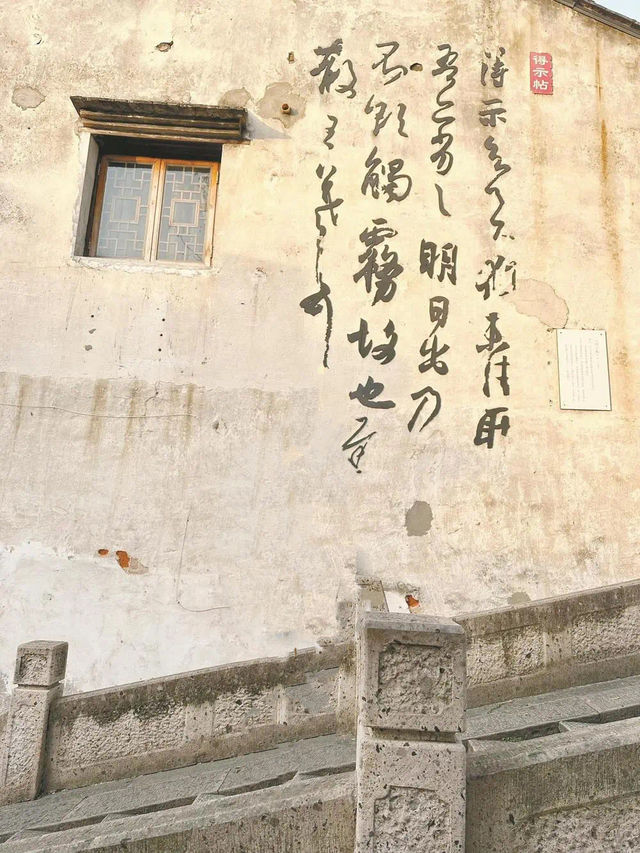 得示帖
得示知足下猶未佳耿
吾亦劣劣明日出乃
不欲觸霧故也遲
散王羲之頓首